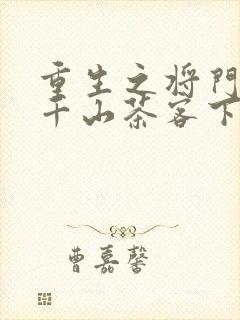 重生之将门
千山茶客下
曹嘉馨